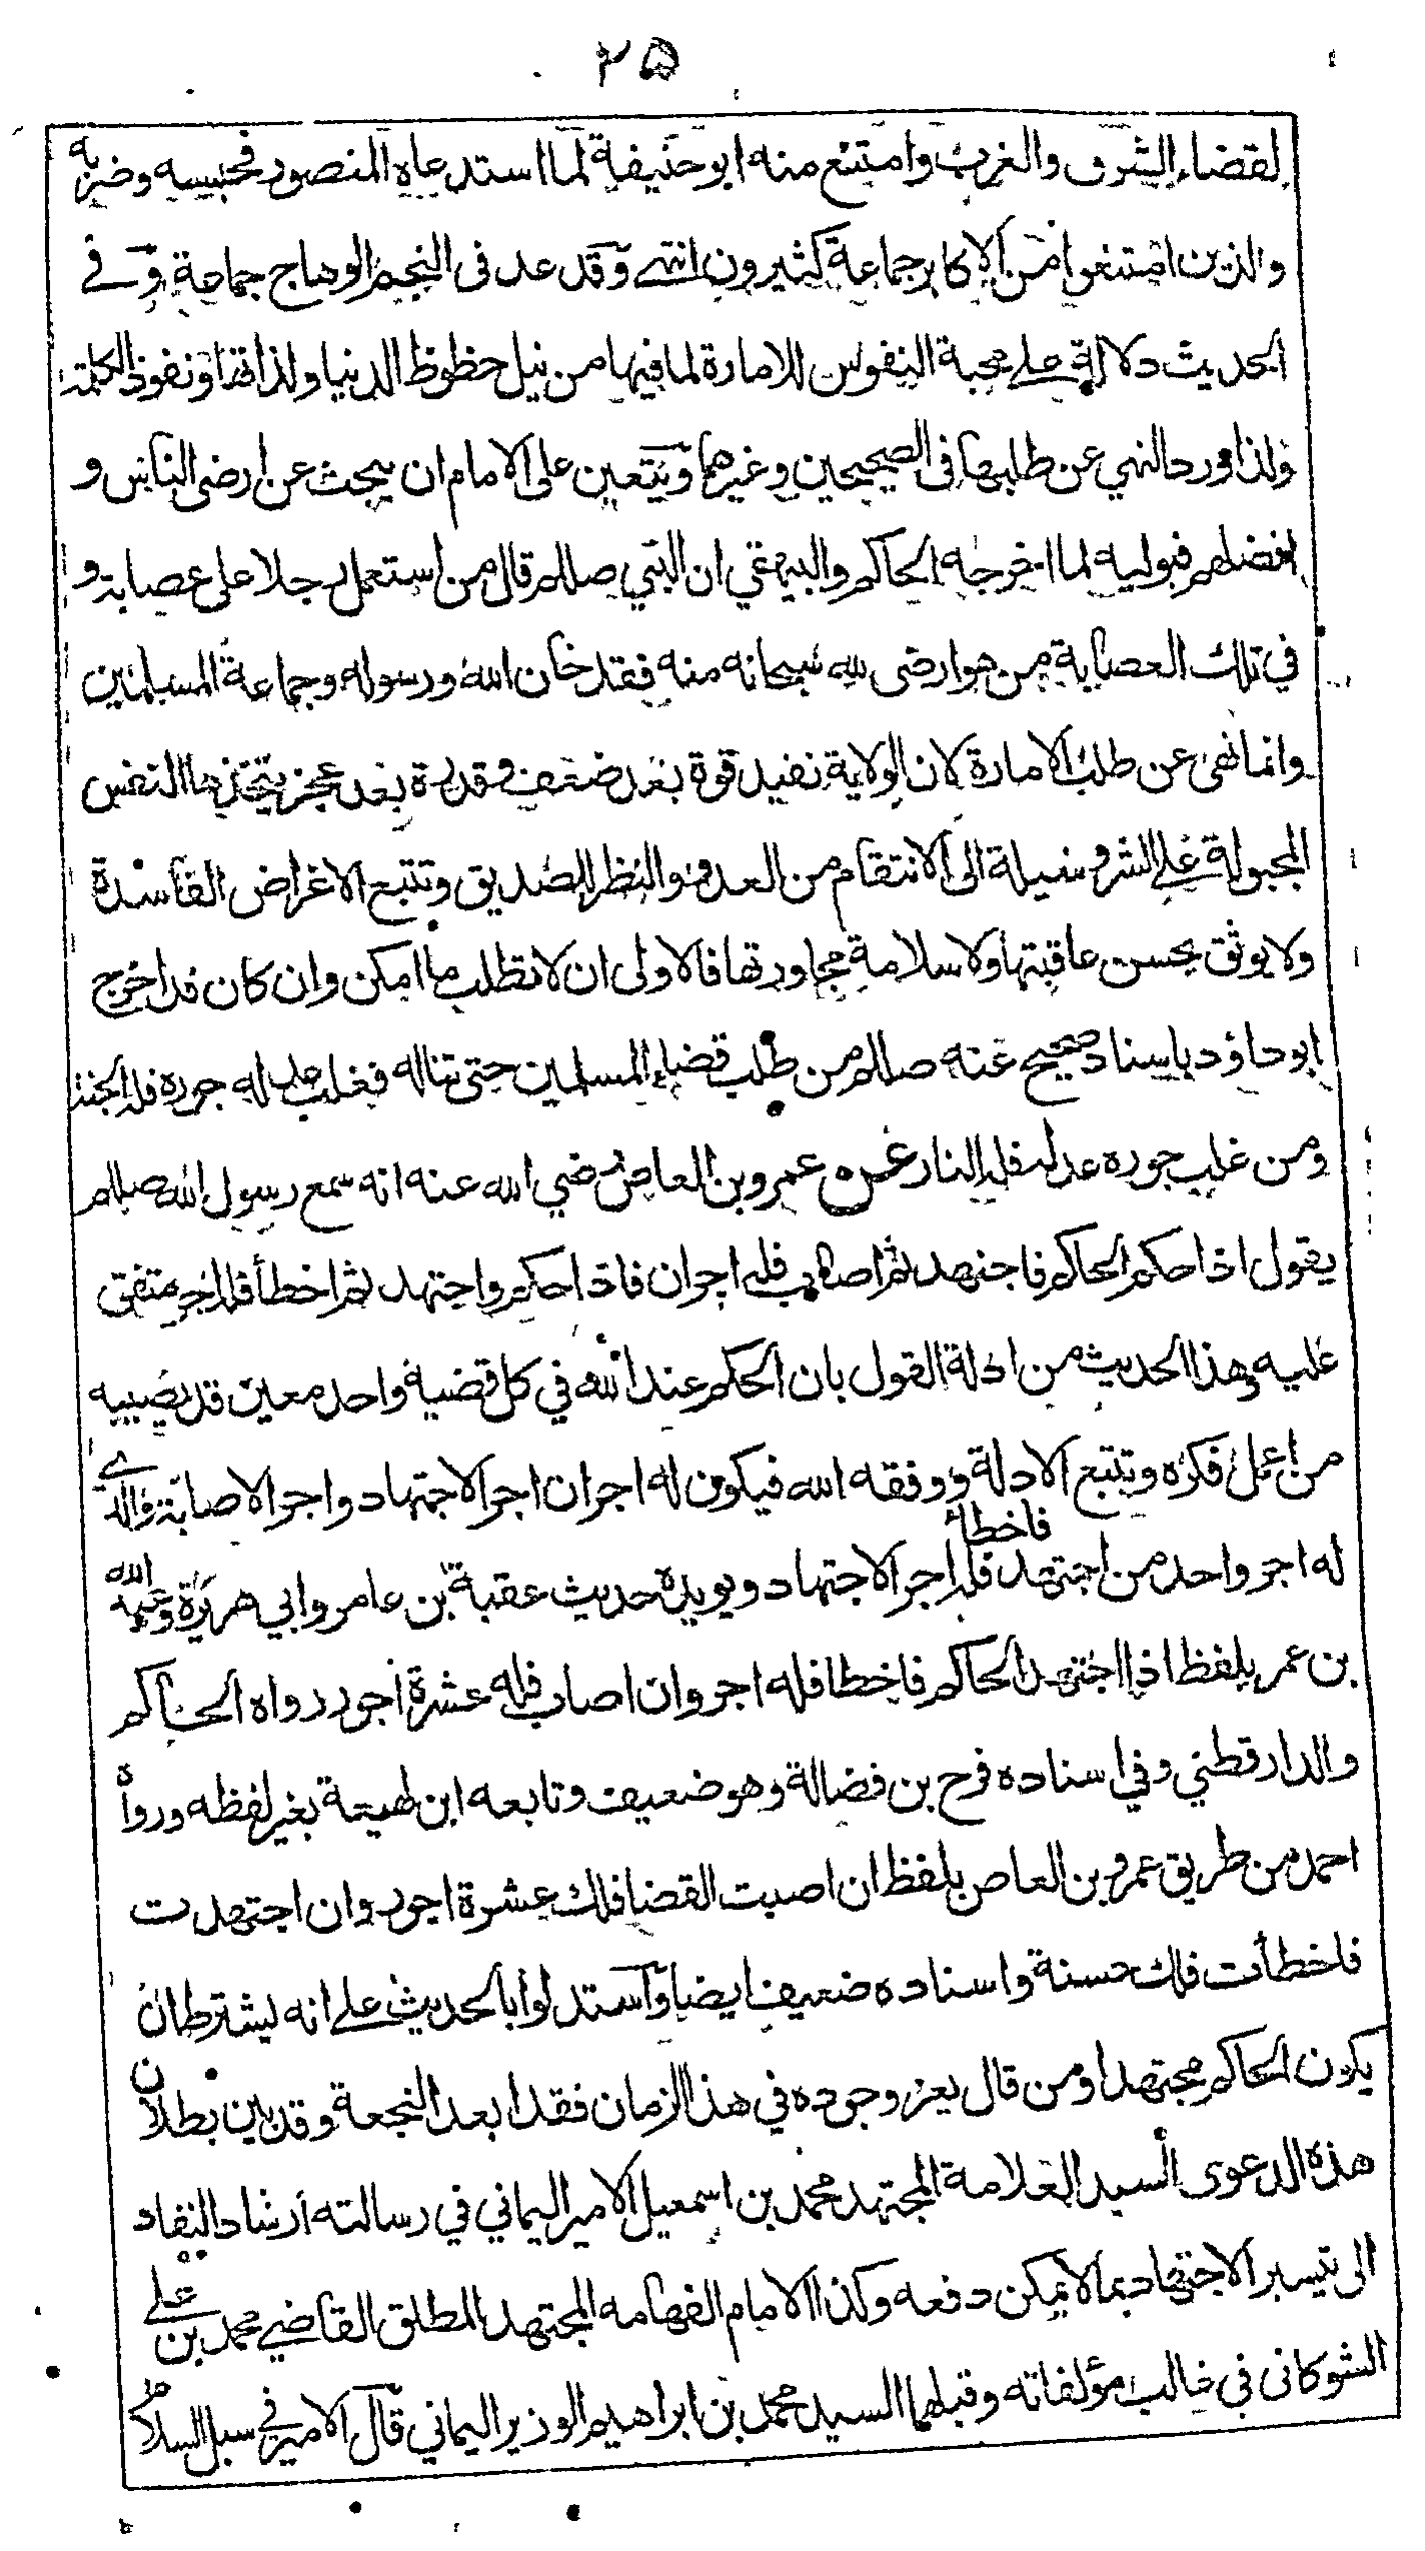 ٢٥
لقضاء الشرق والغرب وامتنع منه ابو حنيفة لما استدعاه المنصور فحبسه وضربه
والذين امتنعوا من الاكابر جماعة كثيرون انتهى وقد عد في النجم الوهاج جماعة وفي
الحديث دلالة على محبة النفوس للامارة لما فيها من نيل حظوظ الدنيا ولذاتها ونفوذ الكلمة
ولذا ورد النهي عن طلبها في الصحيحين وغيرهما ويتعين على الامام ان يبحث عن ارضى الناس و
افضلهم فيوليه لما اخرجه الحاكم والبيهقي ان النبي صللم قال من استعمل رجلا على عصابة و
في تلك العصابة من هو ارضى لله سبحانه منه فقد خان الله ورسوله وجماعة المسلمين
وانما نهى عن طلب الامارة لان الولاية تفيد قوة بعد ضعف وقدرة بعد عجز يتخذها النفس
المجبولة على الشر وسيلة الى الانتقام من العدو والنظر للصديق وتتبع الاغراض الفاسدة
ولا يوثق بحسن عاقبتها ولا سلامة مجاورتها فالاولى ان لا تطلب ما امكن وان كان قد اخرج
ابو داؤد باسناد صحيح عنه صللم من طلب قضاء المسلمين حتى يناله فغلب عدله جوره فله الجنة
ومن غلب جوره عدله فله النار عن عمرو بن العاص رضي الله عنه انه سمع رسول الله صللم
يقول اذا حكم الحاكم فاجتهد ثم اصاب فله اجران فاذا حكم واجتهد ثم اخطأ فله اجر متفق
عليه وهذا الحديث من ادلة القول بان الحكم عند الله في كل قضية واحد معين قد يصيبه
من اعمل فكره وتتبع الادلة ووفقه الله فيكون له اجران اجر الاجتهاد واجر الاصابة والذي
له اجر واحد من اجتهد فاخطأ فله اجر الاجتهاد ويويده حديث عقبة بن عامر وابي هريرة وعبد الله
بن عمر بلفظ اذا اجتهد الحاكم فاخطا فله اجر وان اصاب فله عشرة اجور رواه الحاكم
والدارقطني وفي اسناده فرج بن فضالة وهو ضعيف وتابعه ابن لهيعة بغير لفظه ورواه
احمد من طريق عمرو بن العاص بلفظ ان اصبت القضا فلك عشرة اجور وان اجتهدت
فاخطأت فلك حسنة واسناده ضعيف ايضا واستدلوا بالحديث على انه يشترط ان
يكون الحاكم مجتهدا ومن قال يعز وجوده في هذا الزمان فقد ابعد النجعة وقد بين بطلان
هذه الدعوى السيد العلامة المجتهد محمد بن اسمعيل الامير اليماني في رسالته ارشاد النقاد
الى تيسير الاجتهاد بما لا يمكن دفعه وكذا الامام الفهامه المجتهد المطلق القاضي محمد بن علي
الشوكاني في غالب مؤلفاته وقبلهما السيد محمد بن ابراهيم الوزير اليماني قال الامير في سبل السلام